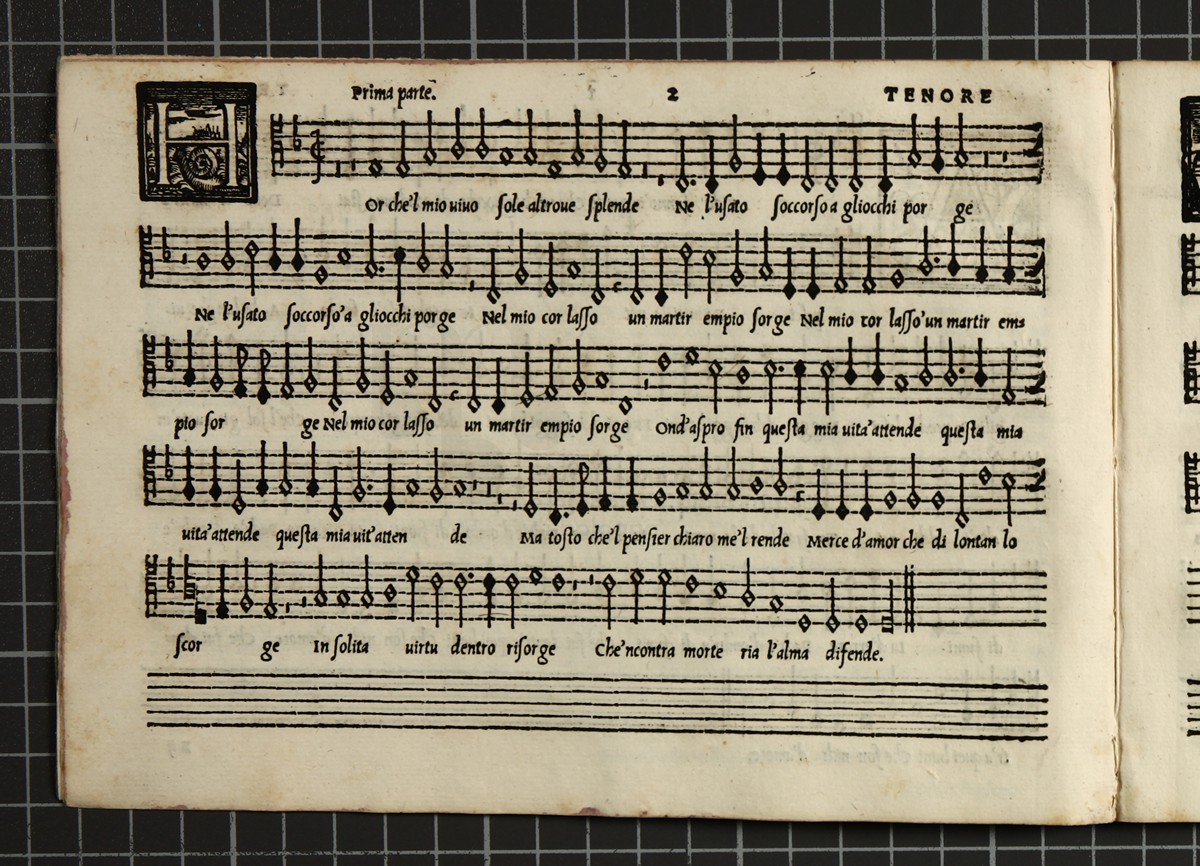 Prima parte. 2 TENORE
HOr che'l mio uiuo ſole altroue ſplende Ne l'uſato ſoccorſo a gliocchi por ge
Ne l'uſato ſoccorſo'a gliocchi porge Nel mio cor laſſo un martir empio ſorge Nel mio cor laſſo'un martir em⸗
pio ſor ge Nel mio cor laſſo un martir empio ſorge Ond'aſpro fin queſta mia uita'attende queſta mia
uita'attende queſta mia uit'atten de Ma toſto che'l penſier chiaro me'l rende Merce d'amor che di lontan lo
ſcor ge In ſolita uirtu dentro riſorge Che'ncontra morte ria l'alma difende.